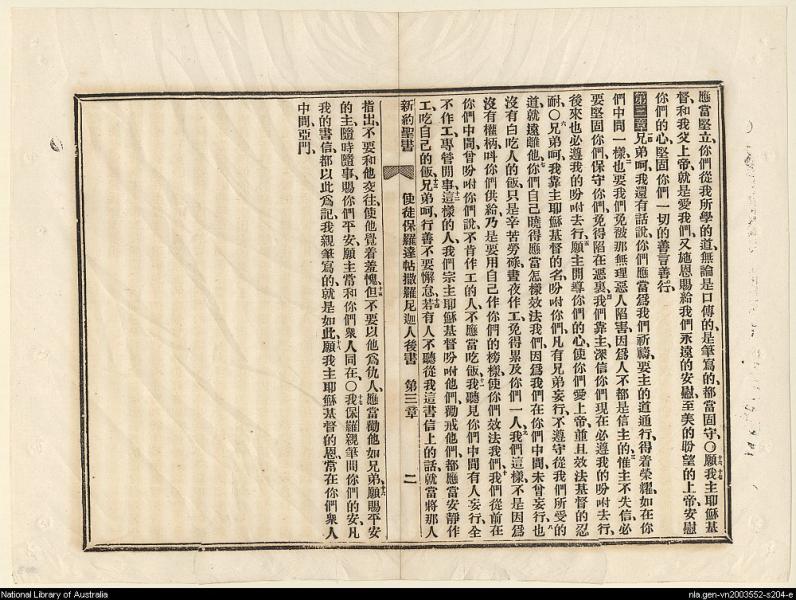 應當堅立、你們從我所學的道、無論是口傳的、是筆寫的、都當固守、〇願我主耶穌基
督和我父上帝、就是愛我們、又施恩賜給我們永遠的安慰、至美的盼望的上帝、安慰
你們的心、堅固你們一切的善言善行。
第三章 兄弟呵、我還有話說、你們應當爲我們祈禱、要主的道通行、得着榮耀、如在你
們中間一樣、也要我們免被那無理惡人陷害、因爲人不都是信主的、惟主不失信、必
要堅固你們、保守你們、免得陷在惡裏、我們靠主、深信你們現在必遵我的吩咐去行、
後來也必遵我的吩咐去行、願主開導你們的心、使你們愛上帝、並且效法基督的忍
耐、〇兄弟呵、我靠主耶穌基督的名、吩咐你們、凡有兄弟妄行、不遵守從我們所受的
道、就遠離他、你們自己曉得應當怎樣效法我們、因爲我們在你們中間、未曾妄行、也
沒有白吃人的飯、只是辛苦勞碌、晝夜作工、免得累及你們一人、我們這樣、不是因爲
沒有權柄呌你們供給、乃是要用自己作你們的榜樣、使你們效法我們、我們從前在
你們中間、曾吩咐你們說、不肯作工的人、不應當吃飯、我聽見你們中間有人妄行、全
不作工、專管閒事、這樣的人、我們宗主耶穌基督吩咐他們、勸戒他們、都應當安靜作
工、吃自己的飯、兄弟呵、行善不要懈怠、若有人不聽從我這書信上的話、就當將那人
新約聖書 使徒保羅達帖撒羅尼迦人後書 第三章 二
指出、不要和他交往、使他覺着羞愧、但不要以他爲仇人、應當勸他如兄弟、願賜平安
的主、隨時隨事賜你們平安、願主常和你們衆人同在、〇我保羅親筆問你們的安、凡
我的書信、都以此爲記、我親筆寫的就是如此、願我主耶穌基督的恩、常在你們衆人
中間、亞門、
National Library of Australia
nla.gen-vn2003552-s204-e